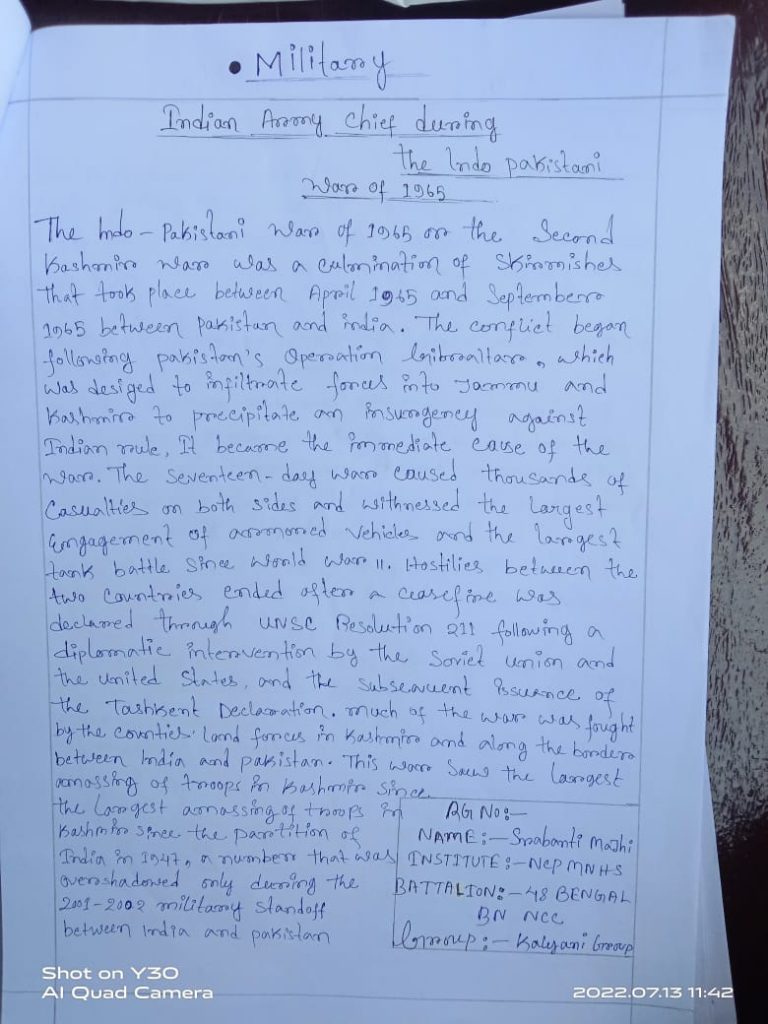 • Military
Indian Army Chief during
the Indo pakistani
War of 1965
The Indo - Pakistani War of 1965 or the Second
Kashmir war was a culmination of Skirmishes
that took place between April 1965 and September
1965 between pakistan and india. The conflict began
following pakistan's Operation Gibraltar, which
was desiged to infiltrate forces into Jammu and
Kashmir to precipitate an insurgency against
Indian rule, It became the immediate cause of the
war. The Seventeen - day war caused thousands of
Casualties on both sides and withnessed the largest
Engagement of armored vehicles and the largest
tank battle since world war 11. Hostilies between the
two Countries ended after a ceasefire was
declared through UNSC Resolution 211 following a
diplomatic intervention by the Soviet union and
the united States, and the subsequent issuance of
the Tashkent Declaration. much of the war was fought
by the counties' land forces in Kashmir and along the border
between India and pakistan. This war saw the largest
amassing of troops in Kashmir since
the largest amassing of troops in
Kashmir since the partition of
India in 1947, a number that was
overshadowed only during the
2001-2002 military standoff
between India and pakistan
RG No:-
NAME:- Srabanti Majhi
INSTITUTE:- NCP MNHS
BATTALION:- 48 BENGAL
BN NCC
Group:- Kalyani Group
Shot on Y30
AI Quad Camera
2022.07.13 11:42